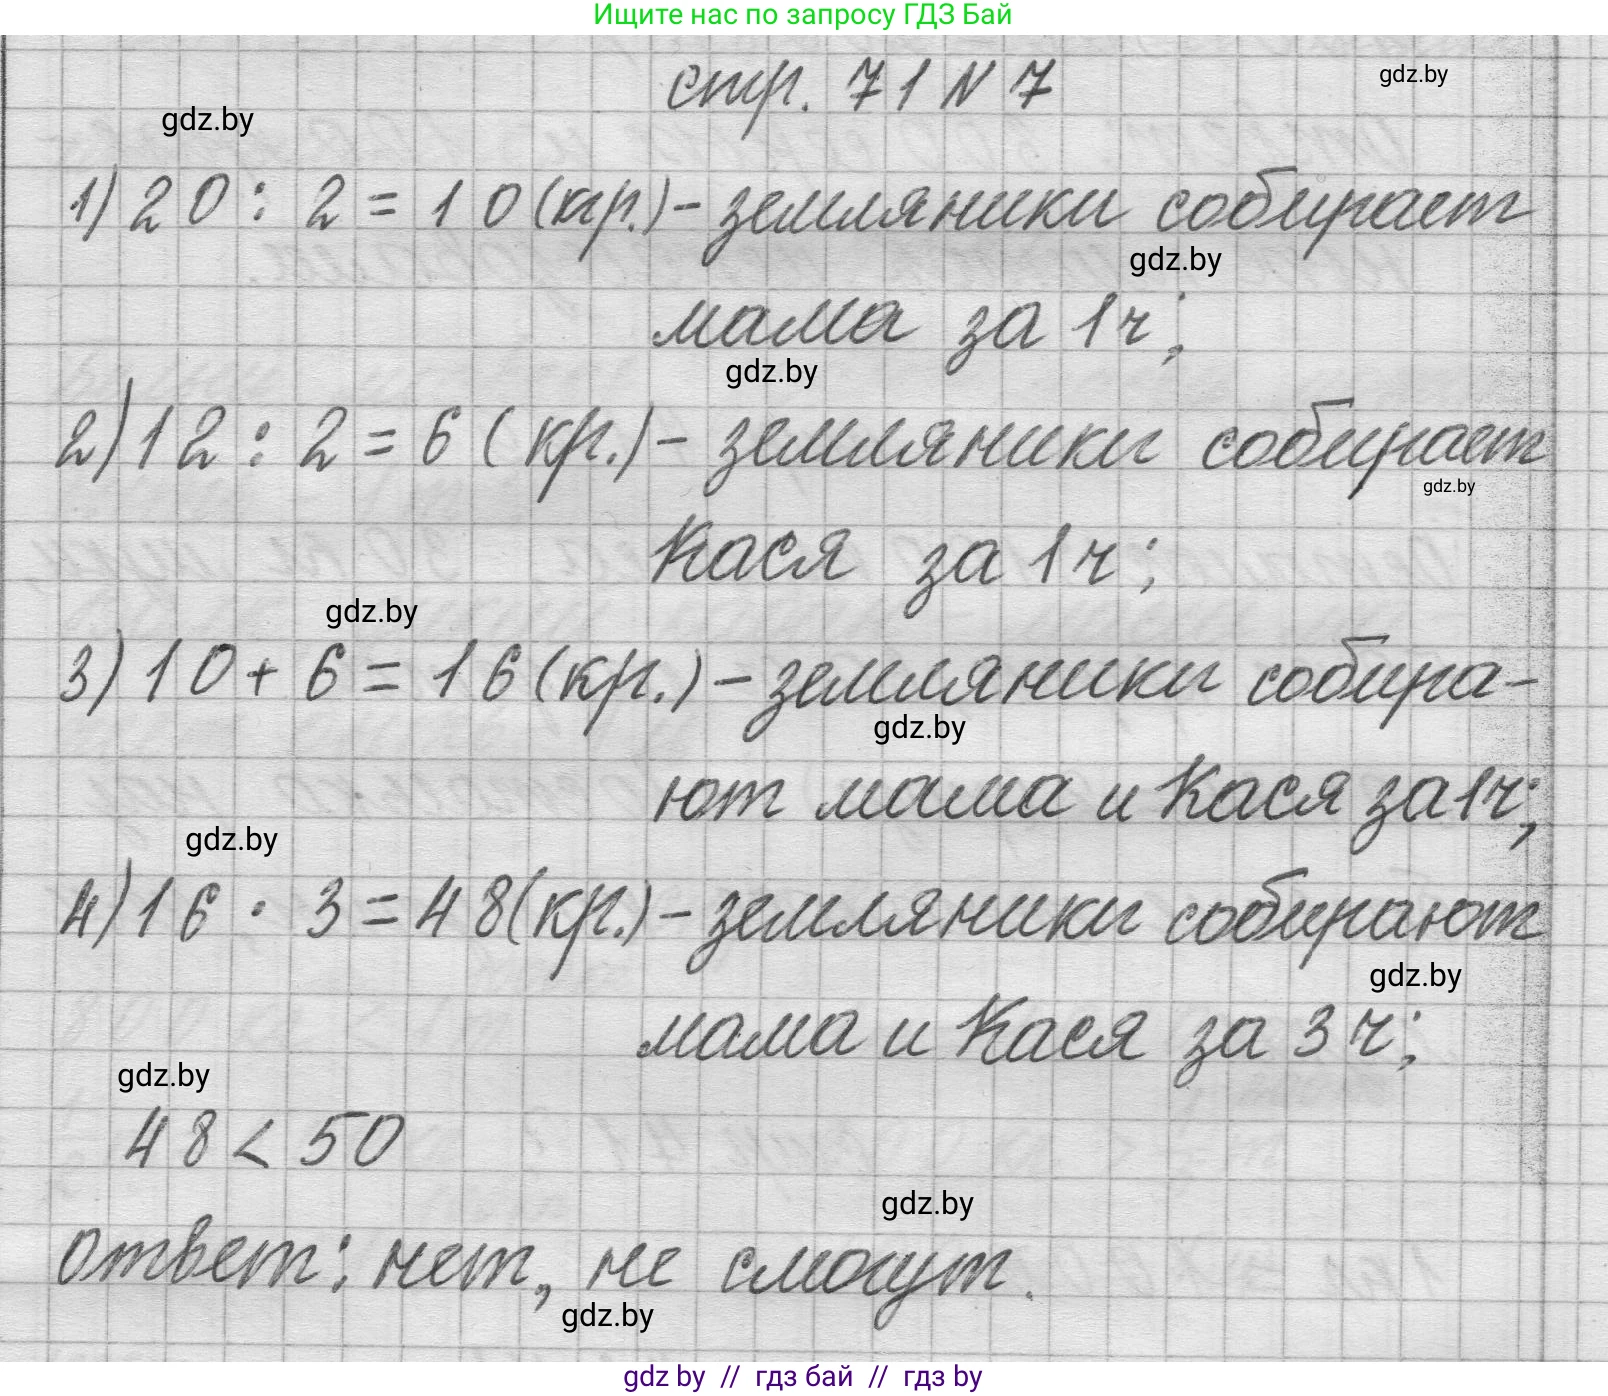 Ищите нас по запросу ГДЗ Бай
стр. 71 N 7
gdz.by
gdz.by
1) 20 : 2 = 10 (кр.) - земляники собирает
gdz.by
мама за 1 ч;
gdz.by
2) 12 : 2 = 6 (кр.) - земляники собирает
gdz.by
Кася за 1 ч;
gdz.by
3) 10 + 6 = 16 (кр.) - земляники собира-
gdz.by
ют мама и Кася за 1 ч;
gdz.by
4) 16 · 3 = 48 (кр.) - земляники собирают
gdz.by
мама и Кася за 3 ч;
gdz.by
48 < 50
gdz.by
ответ: нет, не смогут.
gdz.by
gdz by // гдз бай // гдз by